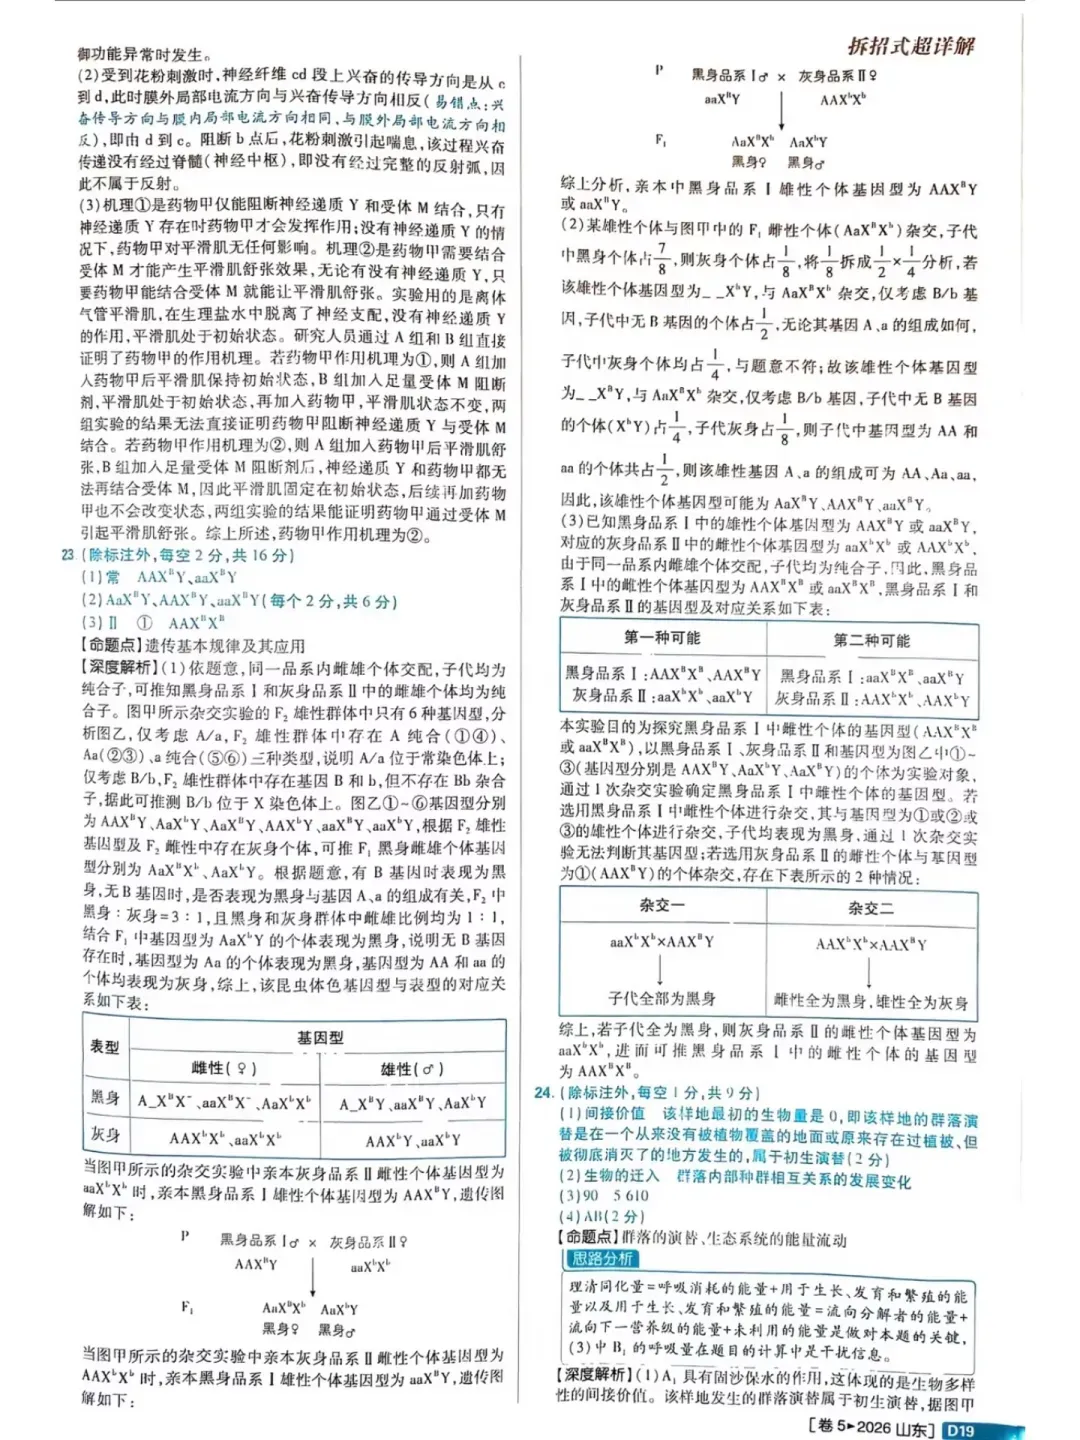 御功能异常时发生。
(2)受到花粉刺激时,神经纤维 cd 段上兴奋的传导方向是从 c
到 d,此时膜外局部电流方向与兴奋传导方向相反(易错点:兴
奋传导方向与膜内局部电流方向相同,与膜外局部电流方向相
反),即由 d 到 c。阻断 b 点后,花粉刺激引起喘息,该过程兴奋
传递没有经过脊髓(神经中枢),即没有经过完整的反射弧,因
此不属于反射。
(3)机理①是药物甲仅能阻断神经递质 Y 和受体 M 结合,只有
神经递质 Y 存在时药物甲才会发挥作用;没有神经递质 Y 的情
况下,药物甲对平滑肌无任何影响。机理②是药物甲需要结合
受体 M 才能产生平滑肌舒张效果,无论有没有神经递质 Y,只
要药物甲能结合受体 M 就能让平滑肌舒张。实验用的是离体
气管平滑肌,在生理盐水中脱离了神经支配,没有神经递质 Y
的作用,平滑肌处于初始状态。研究人员通过 A 组和 B 组直接
证明了药物甲的作用机理。若药物甲作用机理为①,则 A 组加
入药物甲后平滑肌保持初始状态,B 组加入足量受体 M 阻断
剂,平滑肌处于初始状态,再加入药物甲,平滑肌状态不变,两
组实验的结果无法直接证明药物甲阻断神经递质 Y 与受体 M
结合。若药物甲作用机理为②,则 A 组加入药物甲后平滑肌舒
张,B 组加入足量受体 M 阻断剂后,神经递质 Y 和药物甲都无
法再结合受体 M,因此平滑肌固定在初始状态,后续再加药物
甲也不会改变状态,两组实验的结果能证明药物甲通过受体 M
引起平滑肌舒张。综上所述,药物甲作用机理为②。
23. (除标注外,每空 2 分,共 16 分)
(1)常 AAXᴮY、aaXᴮY
(2)AaXᴮY、AAXᴮY、aaXᴮY(每个 2 分,共 6 分)
(3)Ⅱ ① AAXᴮXᴮ
【命题点】遗传基本规律及其应用
【深度解析】(1)依题意,同一品系内雌雄个体交配,子代均为
纯合子,可推知黑身品系Ⅰ和灰身品系Ⅱ中的雌雄个体均为纯
合子。图甲所示杂交实验的 F₂ 雄性群体中只有 6 种基因型,分
析图乙,仅考虑 A/a,F₂ 雄性群体中存在 A 纯合(①④)、
Aa(②③)、a 纯合(⑤⑥)三种类型,说明 A/a 位于常染色体上;
仅考虑 B/b,F₂ 雄性群体中存在基因 B 和 b,但不存在 Bb 杂合
子,据此可推测 B/b 位于 X 染色体上。图乙①~⑥基因型分别
为 AAXᴮY、AaXᵇY、AaXᴮY、AAXᵇY、aaXᴮY、aaXᵇY,根据 F₂ 雄性
基因型及 F₂ 雌性中存在灰身个体,可推 F₁ 黑身雌雄个体基因
型分别为 AaXᴮXᵇ、AaXᵇY。根据题意,有 B 基因时表现为黑
身,无 B 基因时,是否表现为黑身与基因 A、a 的组成有关,F₂ 中
黑身∶灰身=3∶1,且黑身和灰身群体中雌雄比例均为 1∶1,
结合 F₁ 中基因型为 AaXᵇY 的个体表现为黑身,说明无 B 基因
存在时,基因型为 Aa 的个体表现为黑身,基因型为 AA 和 aa 的
个体均表现为灰身,综上,该昆虫体色基因型与表型的对应关
系如下表:
表型 基因型
雌性(♀) 雄性(♂)
黑身 A_XᴮX⁻、aaXᴮX⁻、AaXᵇXᵇ A_XᴮY、aaXᴮY、AaXᵇY
灰身 AAXᵇXᵇ、aaXᵇXᵇ AAXᵇY、aaXᵇY
当图甲所示的杂交实验中亲本灰身品系Ⅱ雌性个体基因型为
aaXᵇXᵇ 时,亲本黑身品系Ⅰ雄性个体基因型为 AAXᴮY,遗传图
解如下:
P 黑身品系Ⅰ♂ × 灰身品系Ⅱ♀
AAXᴮY aaXᵇXᵇ
F₁ AaXᴮXᵇ AaXᵇY
黑身♀ 黑身♂
当图甲所示的杂交实验中亲本灰身品系Ⅱ雌性个体基因型为
AAXᵇXᵇ 时,亲本黑身品系Ⅰ雄性个体基因型为 aaXᴮY,遗传图
解如下:
拆招式超详解
P 黑身品系Ⅰ♂ × 灰身品系Ⅱ♀
aaXᴮY AAXᵇXᵇ
F₁ AaXᴮXᵇ AaXᵇY
黑身♀ 黑身♂
综上分析,亲本中黑身品系Ⅰ雄性个体基因型为 AAXᴮY
或 aaXᴮY。
(2)某雄性个体与图甲中的 F₁ 雌性个体(AaXᴮXᵇ)杂交,子代
中黑身个体占7/8,则灰身个体占1/8,将1/8拆成1/2×1/4分析,若
该雄性个体基因型为_ _XᵇY,与 AaXᴮXᵇ 杂交,仅考虑 B/b 基
因,子代中无 B 基因的个体占1/2,无论其基因 A、a 的组成如何,
子代中灰身个体均占1/4,与题意不符;故该雄性个体基因型
为_ _XᴮY,与 AaXᴮXᵇ 杂交,仅考虑 B/b 基因,子代中无 B 基因
的个体(XᵇY)占1/4,子代灰身占1/8,则子代中基因型为 AA 和
aa 的个体共占1/2,则该雄性基因 A、a 的组成可为 AA、Aa、aa,
因此,该雄性个体基因型可能为 AaXᴮY、AAXᴮY、aaXᴮY。
(3)已知黑身品系Ⅰ中的雄性个体基因型为 AAXᴮY 或 aaXᴮY,
对应的灰身品系Ⅱ中的雌性个体基因型为 aaXᵇXᵇ 或 AAXᵇXᵇ,
由于同一品系内雌雄个体交配,子代均为纯合子,因此,黑身品
系Ⅰ中的雌性个体基因型为 AAXᴮXᴮ 或 aaXᴮXᴮ,黑身品系Ⅰ和
灰身品系Ⅱ的基因型及对应关系如下表:
第一种可能 第二种可能
黑身品系Ⅰ:AAXᴮXᴮ、AAXᴮY 黑身品系Ⅰ:aaXᴮXᴮ、aaXᴮY
灰身品系Ⅱ:aaXᵇXᵇ、aaXᵇY 灰身品系Ⅱ:AAXᵇXᵇ、AAXᵇY
本实验目的为探究黑身品系Ⅰ中雌性个体的基因型(AAXᴮXᴮ
或 aaXᴮXᴮ),以黑身品系Ⅰ、灰身品系Ⅱ和基因型为图乙中①~
③(基因型分别是 AAXᴮY、AaXᵇY、AaXᴮY)的个体为实验对象,
通过 1 次杂交实验确定黑身品系Ⅰ中雌性个体的基因型。若
选用黑身品系Ⅰ中雌性个体进行杂交,其与基因型为①或②或
③的雄性个体进行杂交,子代均表现为黑身,通过 1 次杂交实
验无法判断其基因型;若选用灰身品系Ⅱ的雌性个体与基因型
为①(AAXᴮY)的个体杂交,存在下表所示的 2 种情况:
杂交一 杂交二
aaXᵇXᵇ×AAXᴮY AAXᵇXᵇ×AAXᴮY
子代全部为黑身 雌性全为黑身,雄性全为灰身
综上,若子代全为黑身,则灰身品系Ⅱ的雌性个体基因型为
aaXᵇXᵇ,进而可推黑身品系Ⅰ中的雌性个体的基因型
为 AAXᴮXᴮ。
24. (除标注外,每空 1 分,共 9 分)
(1)间接价值 该样地最初的生物量是 0,即该样地的群落演
替是在一个从来没有被植物覆盖的地面或原来存在过植被、但
被彻底消灭了的地方发生的,属于初生演替(2 分)
(2)生物的迁入 群落内部种群相互关系的发展变化
(3)90 5 610
(4)AB(2 分)
【命题点】群落的演替、生态系统的能量流动
思路分析
理清同化量=呼吸消耗的能量+用于生长、发育和繁殖的能
量以及用于生长、发育和繁殖的能量=流向分解者的能量+
流向下一营养级的能量+未利用的能量是做对本题的关键,
(3)中 B₁ 的呼吸量在题目的计算中是干扰信息。
【深度解析】(1)A₁ 具有固沙保水的作用,这体现的是生物多样
性的间接价值。该样地发生的群落演替属于初生演替,据图甲
[卷 5▶2026 山东] D19